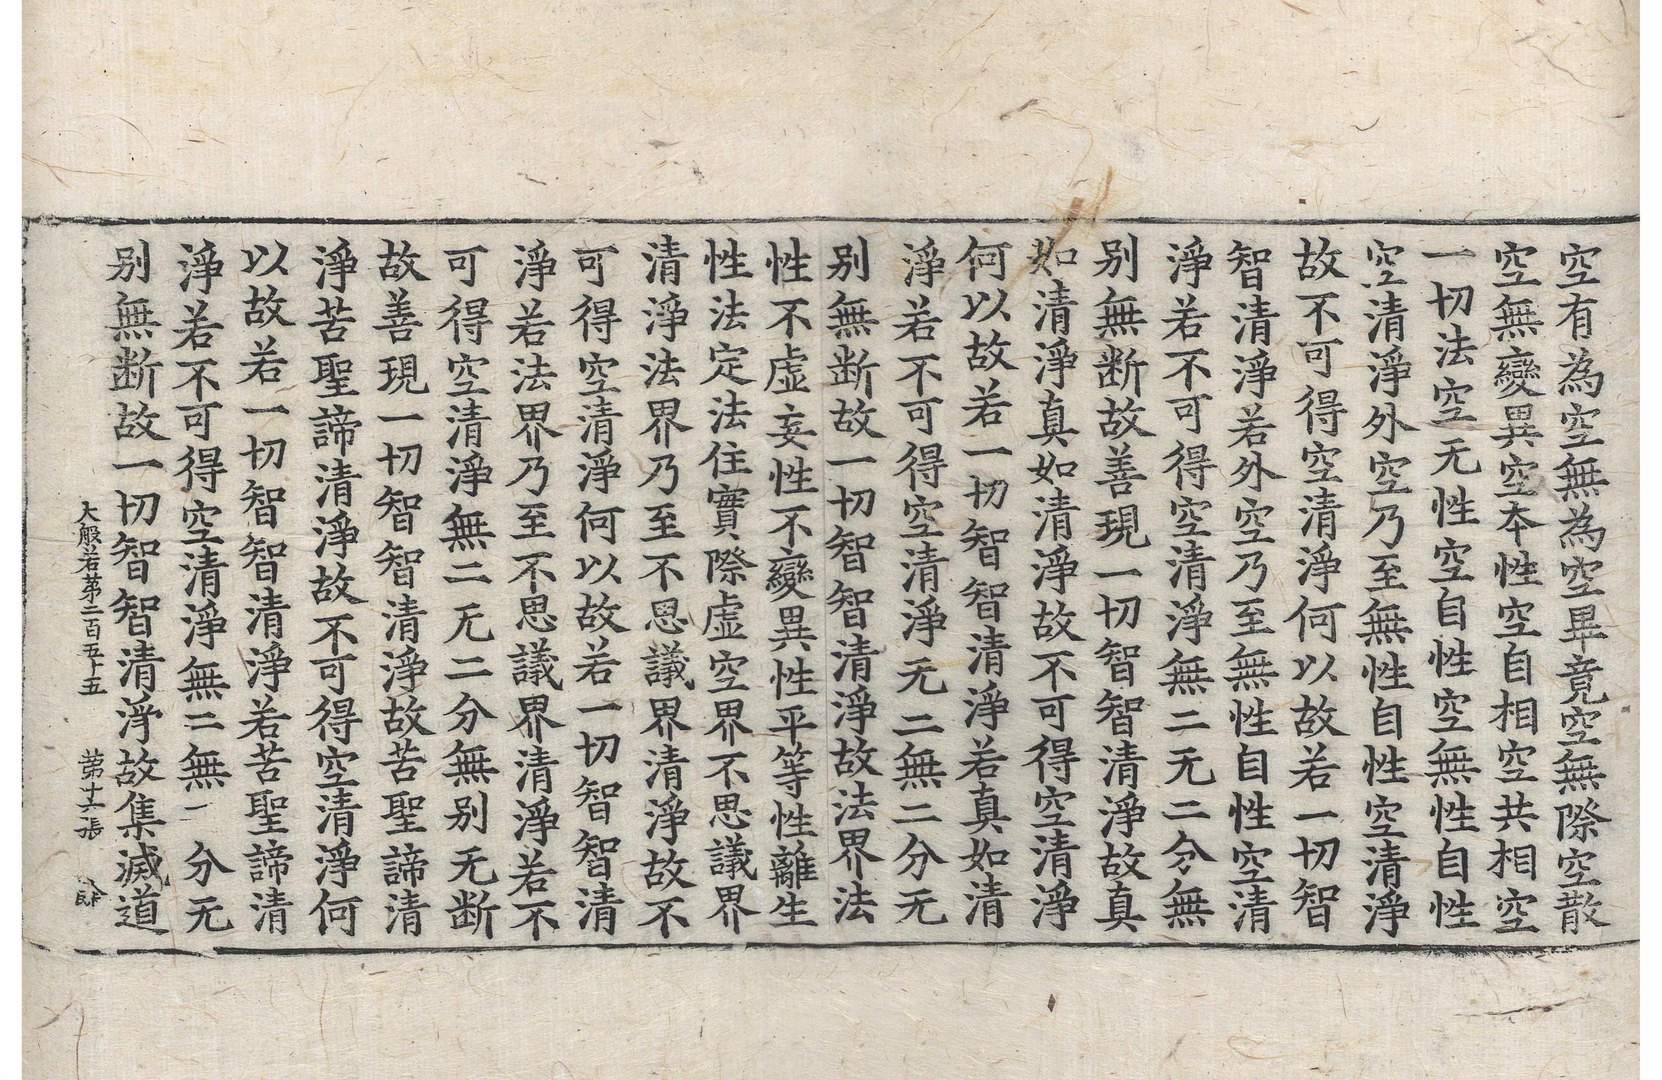 空有為空無為空畢竟空無際空散
空無變異空本性空自相空共相空
一切法空无性空自性空無性自性
空清淨外空乃至無性自性空清淨
故不可得空清淨何以故若一切智
智清淨若外空乃至無性自性空清
淨若不可得空清淨無二无二分無
别無断故善現一切智智清淨故真
如清淨真如清淨故不可得空清淨
何以故若一切智智清淨若真如清
淨若不可得空清淨无二無二分无
别無断故一切智智清淨故法界法
性不虛妄性不變異性平等性離生
性法定法住實際虛空界不思議界
清淨法界乃至不思議界清淨故不
可得空清淨何以故若一切智智清
淨若法界乃至不思議界清淨若不
可得空清淨無二无二分無别无断
故善現一切智智清淨故苦聖諦清
淨苦聖諦清淨故不可得空清淨何
以故若一切智智清淨若苦聖諦清
淨若不可得空清淨無二無 分无
别無断故一切智智清淨故集滅道
大般若第二百五十五 第十二張